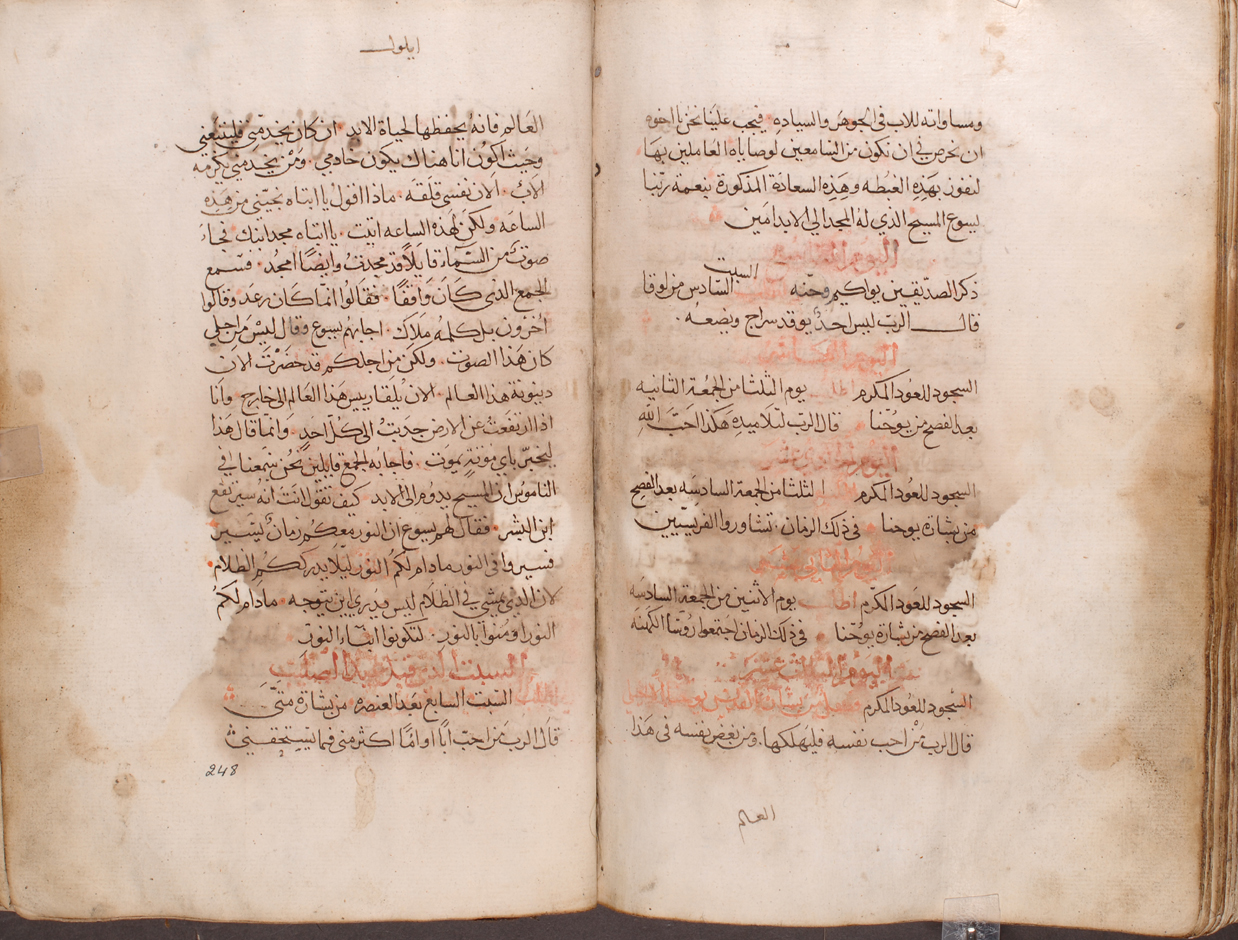 ومساواته للاب في الجوهر والسياده فيجب علينا نحن يا اخوه
ان نحرص في ان نكون من السامعين لوصاياه العاملين بها
لنفوز بهذه الغبطه وهذه السعادة المذكورة بنعمة ربنا
يسوع المسيح الذي له المجد الي الابد امين
اليوم التاسع
ذكر الصديقين يواكيم وحنه السبت السادس من لوقا
قال الرب ليس احد يوقد سراج ويضعه
اليوم
السجود للعود المكرم اطلب يوم الثلثا من الجمعة الثانيه
بعد الفصح من يوحنا قال الرب لتلاميذه هكذا احب الله
اليوم الحادي عشر
السجود للعود المكرم الثلثا من الجمعة السادسه بعد الفصح
من بشارة يوحنا في ذلك الزمان تشاوروا الفريسيين
اليوم الثاني عشر
السجود للعود المكرم اطلب يوم الاثنين من الجمعة السادسه
بعد الفصح من بشارة يوحنا في ذلك الزمان اجتمعوا روسا الكهنه
اليوم الثالث عشر
السجود للعود المكرم فصل من بشارة القديس يوحنا
قال الرب من احب نفسه فليهلكها ومن بغض نفسه في هذا
العالم
ايلول
العالم فانه يحفظها لحياة الابد ان كان يخدمني فليتبعني
وحيث اكون انا هناك يكون خادمي ومن يخدمني يكرمه
الاب الان نفسي قلقه ماذا اقول يا ابتاه نجيني من هذه
الساعه ولكن لهذه الساعه اتيت يا ابتاه مجد ابنك فجاء
صوت من السماء قايلا قد مجدت وايضا امجد فسمع
الجمع الذي كان واقفا فقالوا انما كان رعد وقالوا
اخرون بل كلمه ملاك اجابهم يسوع وقال ليس من اجلي
كان هذا الصوت ولكن من اجلكم قد حضرت الان
دينونة هذا العالم الان يلقا رييس هذا العالم الى خارج وانا
اذا ارتفعت عن الارض جديت الى كل احد وانما قال هذا
ليخبر باي موتة يموت فاجابه الجمع قايلين نحن سمعنا في
الناموس ان المسيح يدوم الى الابد كيف تقول انت انه سيرتفع
ابن البشر فقال لهم يسوع ان النور معكم زمان يسير
فسيروا في النور ما دام لكم النور ليلا يدرككم الظلام
لان الذي يمشي في الظلام ليس يدري اين يتوجه ما دام لكم
النور امنوا بالنور لتكونوا ابناء النور
السبت الذي قبل عيد الصليب
السبت السابع بعد العنصره من بشارة متى
قال الرب من احب ابا او اما اكثر مني فما يستحقني
248